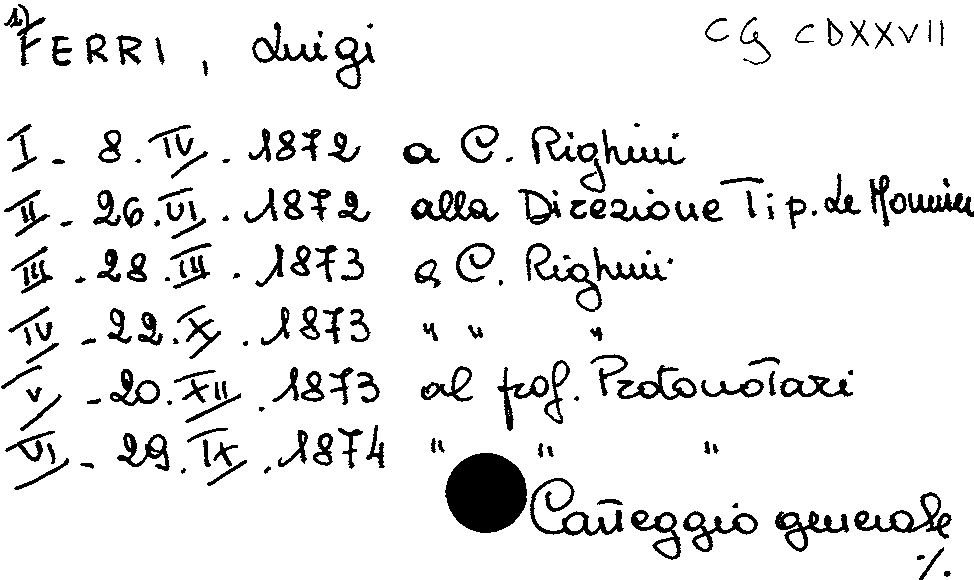 1) FERRI, Luigi CG CDXXVII
I - 8.IV.1872 a C. Righini
II - 26.VI.1872 alla Direzione Tip. Le Monnier
III - 28.III.1873 a C. Righini
IV - 22.X.1873 " " "
V - 20.XII.1873 al prof. Protonotari
VI - 29.IX.1874 " " "
Carteggio generale
./.